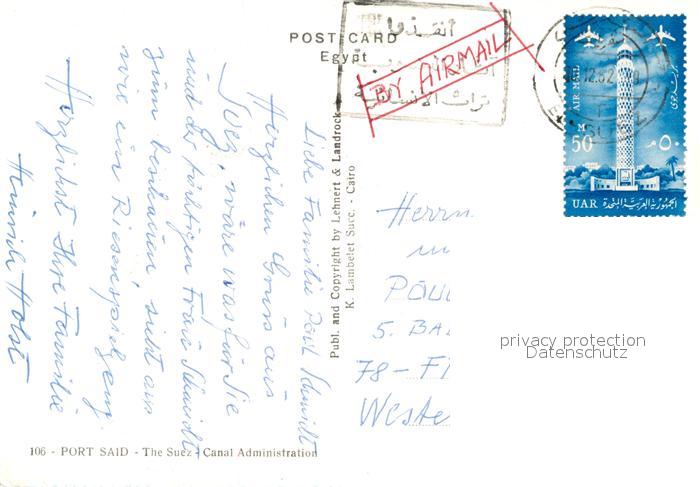 POST CARD
Egypt
أنقذوا
تراث الإنسانية
BY AIRMAIL
AIR MAIL
M
50
٥٠ م
بريد جوى
UAR الجمهورية العربية المتحدة
12.62
SUEZ
Liebe Familie Paul Schmidt
Herzlichen Gruss aus
Suez, wäre was für Sie
und der tüchtigen Frau Schmidt
zum beschauen, sieht aus
wie ein Riesenspielzeug.
Herzlichst Ihre Familie
Heinrich Holst
Publ. and Copyright by Lehnert & Landrock
K. Lambelet Succ. - Cairo
Herrn
5. BA
78-FI
Weste
privacy protection
Datenschutz
106 - PORT SAID - The Suez Canal Administration